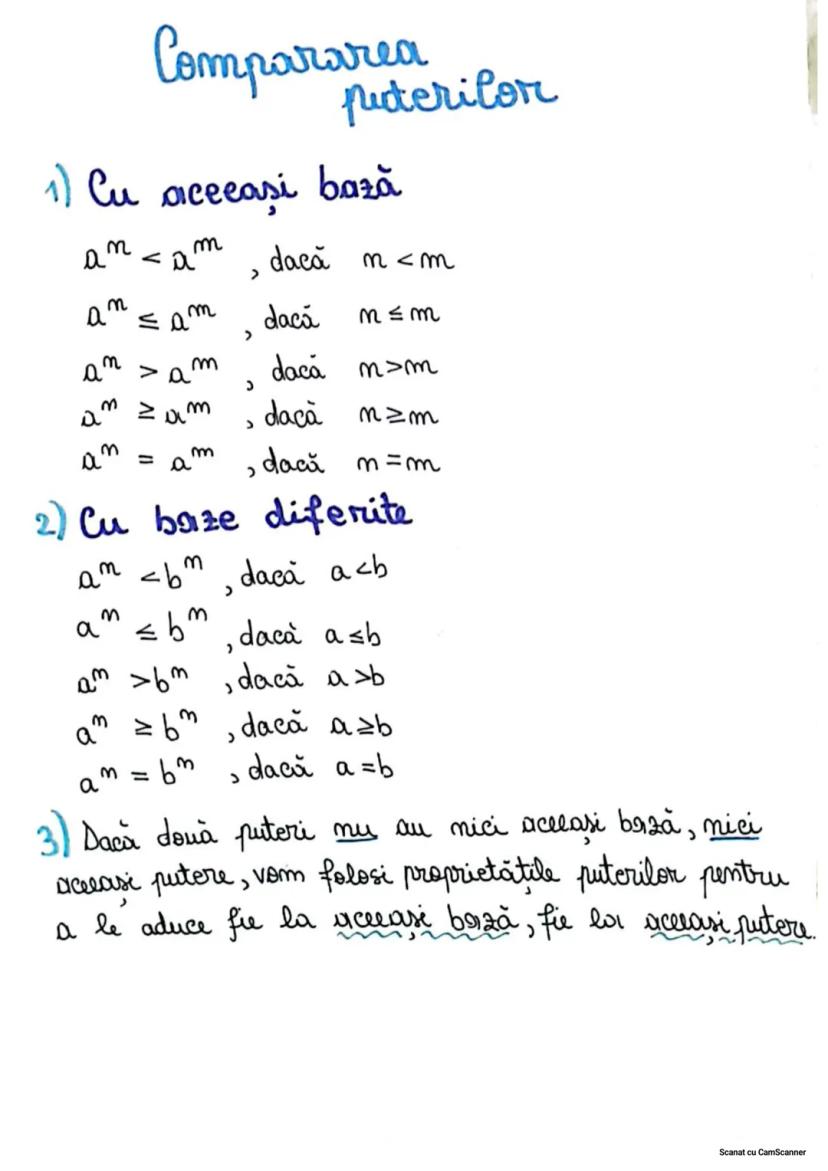 Compararea
puterilor
1) Cu aceeași bază
aⁿ < aᵐ , dacă n < m
aⁿ ≤ aᵐ , dacă n ≤ m
aⁿ > aᵐ , dacă n > m
aⁿ ≥ aᵐ , dacă n ≥ m
aⁿ = aᵐ , dacă n = m
2) Cu baze diferite
aⁿ < bⁿ , dacă a < b
aⁿ ≤ bⁿ , dacă a ≤ b
aⁿ > bⁿ , dacă a > b
aⁿ ≥ bⁿ , dacă a ≥ b
aⁿ = bⁿ , dacă a = b
3) Dacă două puteri nu au nici aceeași bază, nici
aceeași putere, vom folosi proprietățile puterilor pentru
a le aduce fie la aceeași bază, fie la aceeași putere.
Scanat cu CamScanner